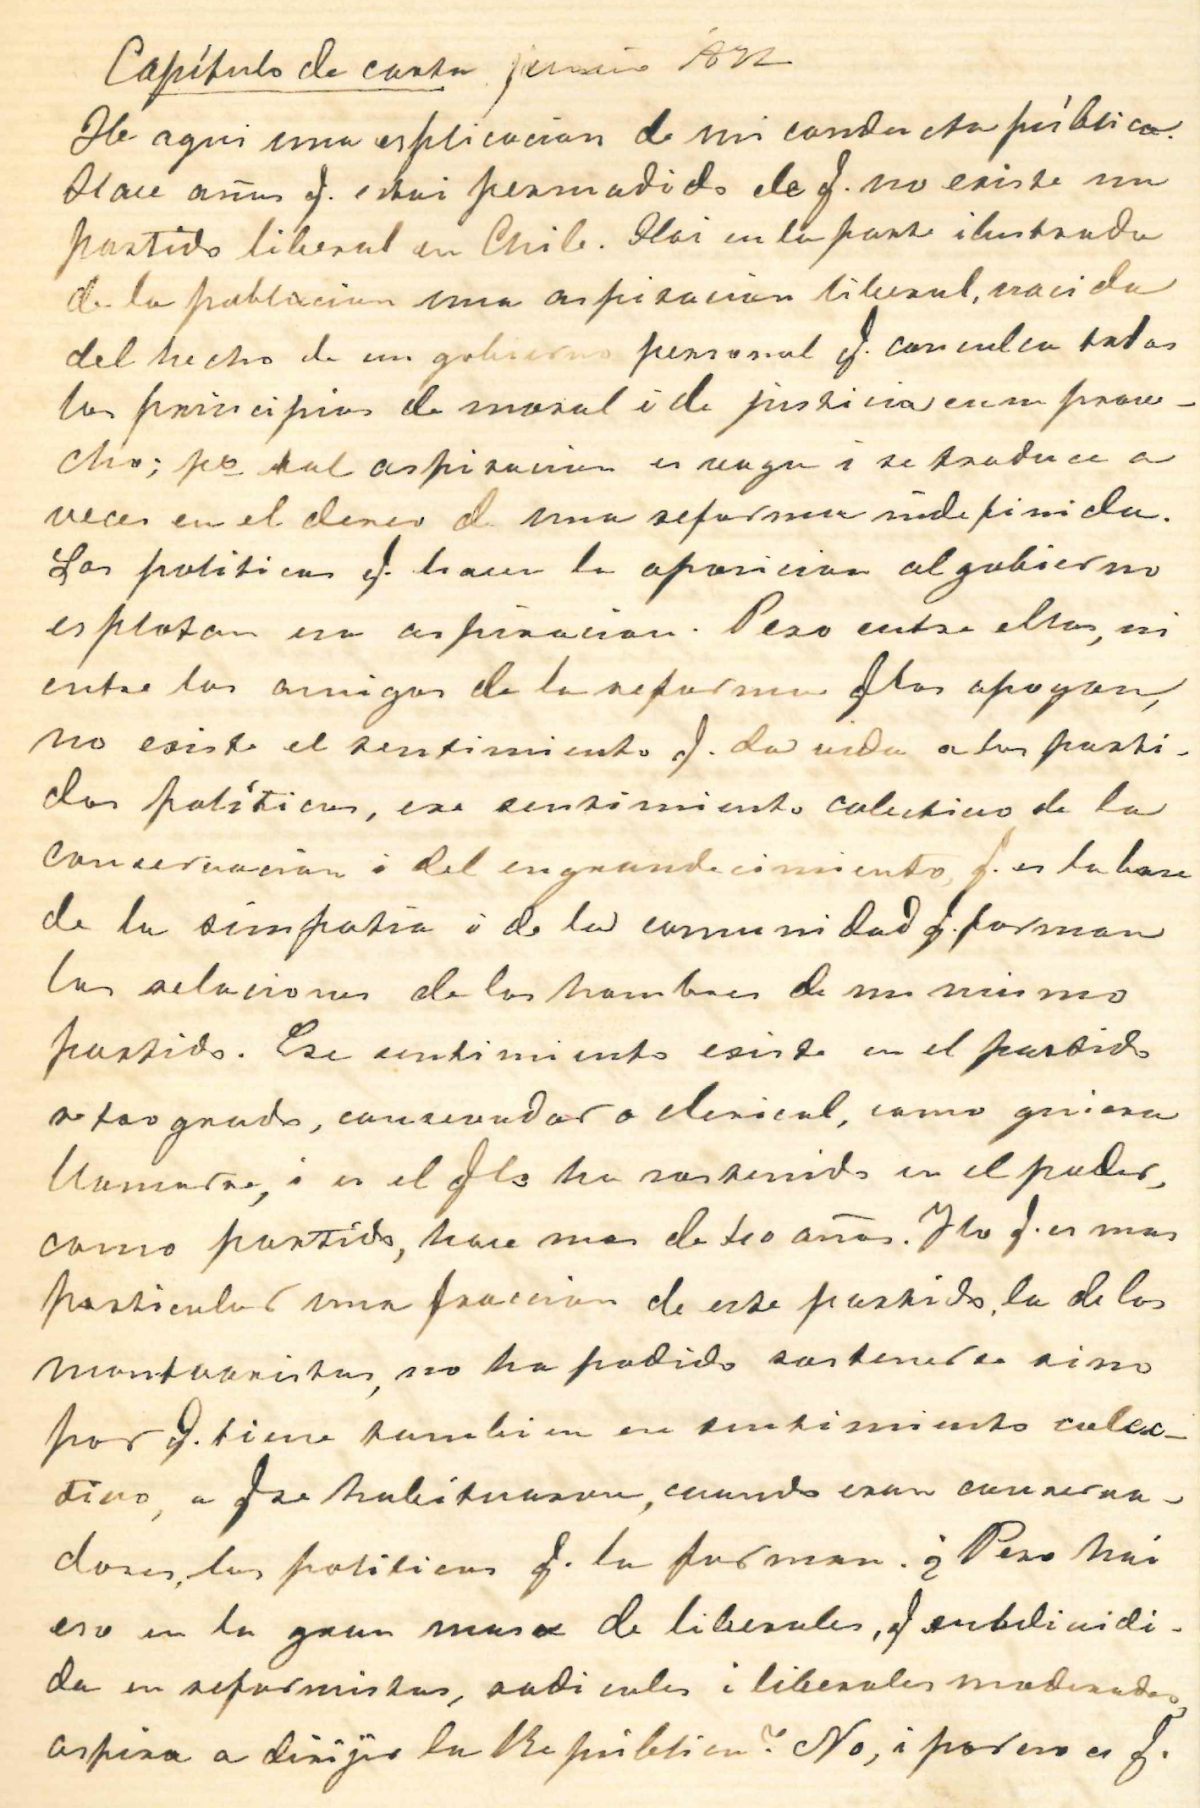 Capítulo de carta
He aqui una esplicacion de mi conducta pública.
Hace años q. estoi persuadido de q. no existe un
partido liberal en Chile. Hai en la parte ilustrada
de la poblacion una aspiracion liberal, nacida
del hecho de un gobierno personal q. conculca todos
los principios de moral i de justicia en su prove-
cho; po tal aspiracion es vaga i se traduce a
veces en el deseo de una reforma indefinida.
Los politicos q. hacen la oposicion al gobierno
esplotan esa aspiracion. Pero entre ellos, ni
entre los amigos de la reforma q los apoyan,
no existe el sentimiento q. da vida a los parti-
dos políticos, ese sentimiento colectivo de la
conservacion i del engrandecimiento, q. es la base
de la simpatia i de la comunidad q. forman
las relaciones de los hombres de un mismo
partido. Ese sentimiento existe en el partido
retrogrado, conservador o clerical, como quiera
llamarse, i es el q lo ha sostenido en el poder,
como partido, hace mas de 40 años. I lo q. es mas
particular una fraccion de este partido, la de los
monttvaristas, no ha podido sostenerse sino
por q. tiene tambien ese sentimiento colec-
tivo, a q se habituaron, cuando eran conserva-
dores, los politicos q. la forman. ¿Pero hai
eso en la gran masa de liberales, q subdividi-
da en reformistas, radicales i liberales moderados,
aspira a dirijir la República? No, i por eso es q.